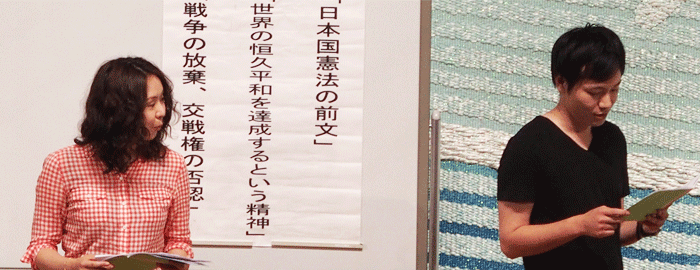 「日本国憲法の前文」
「世界の恒久平和を達成するという精神」
戦争の放棄、交戦権の否認」